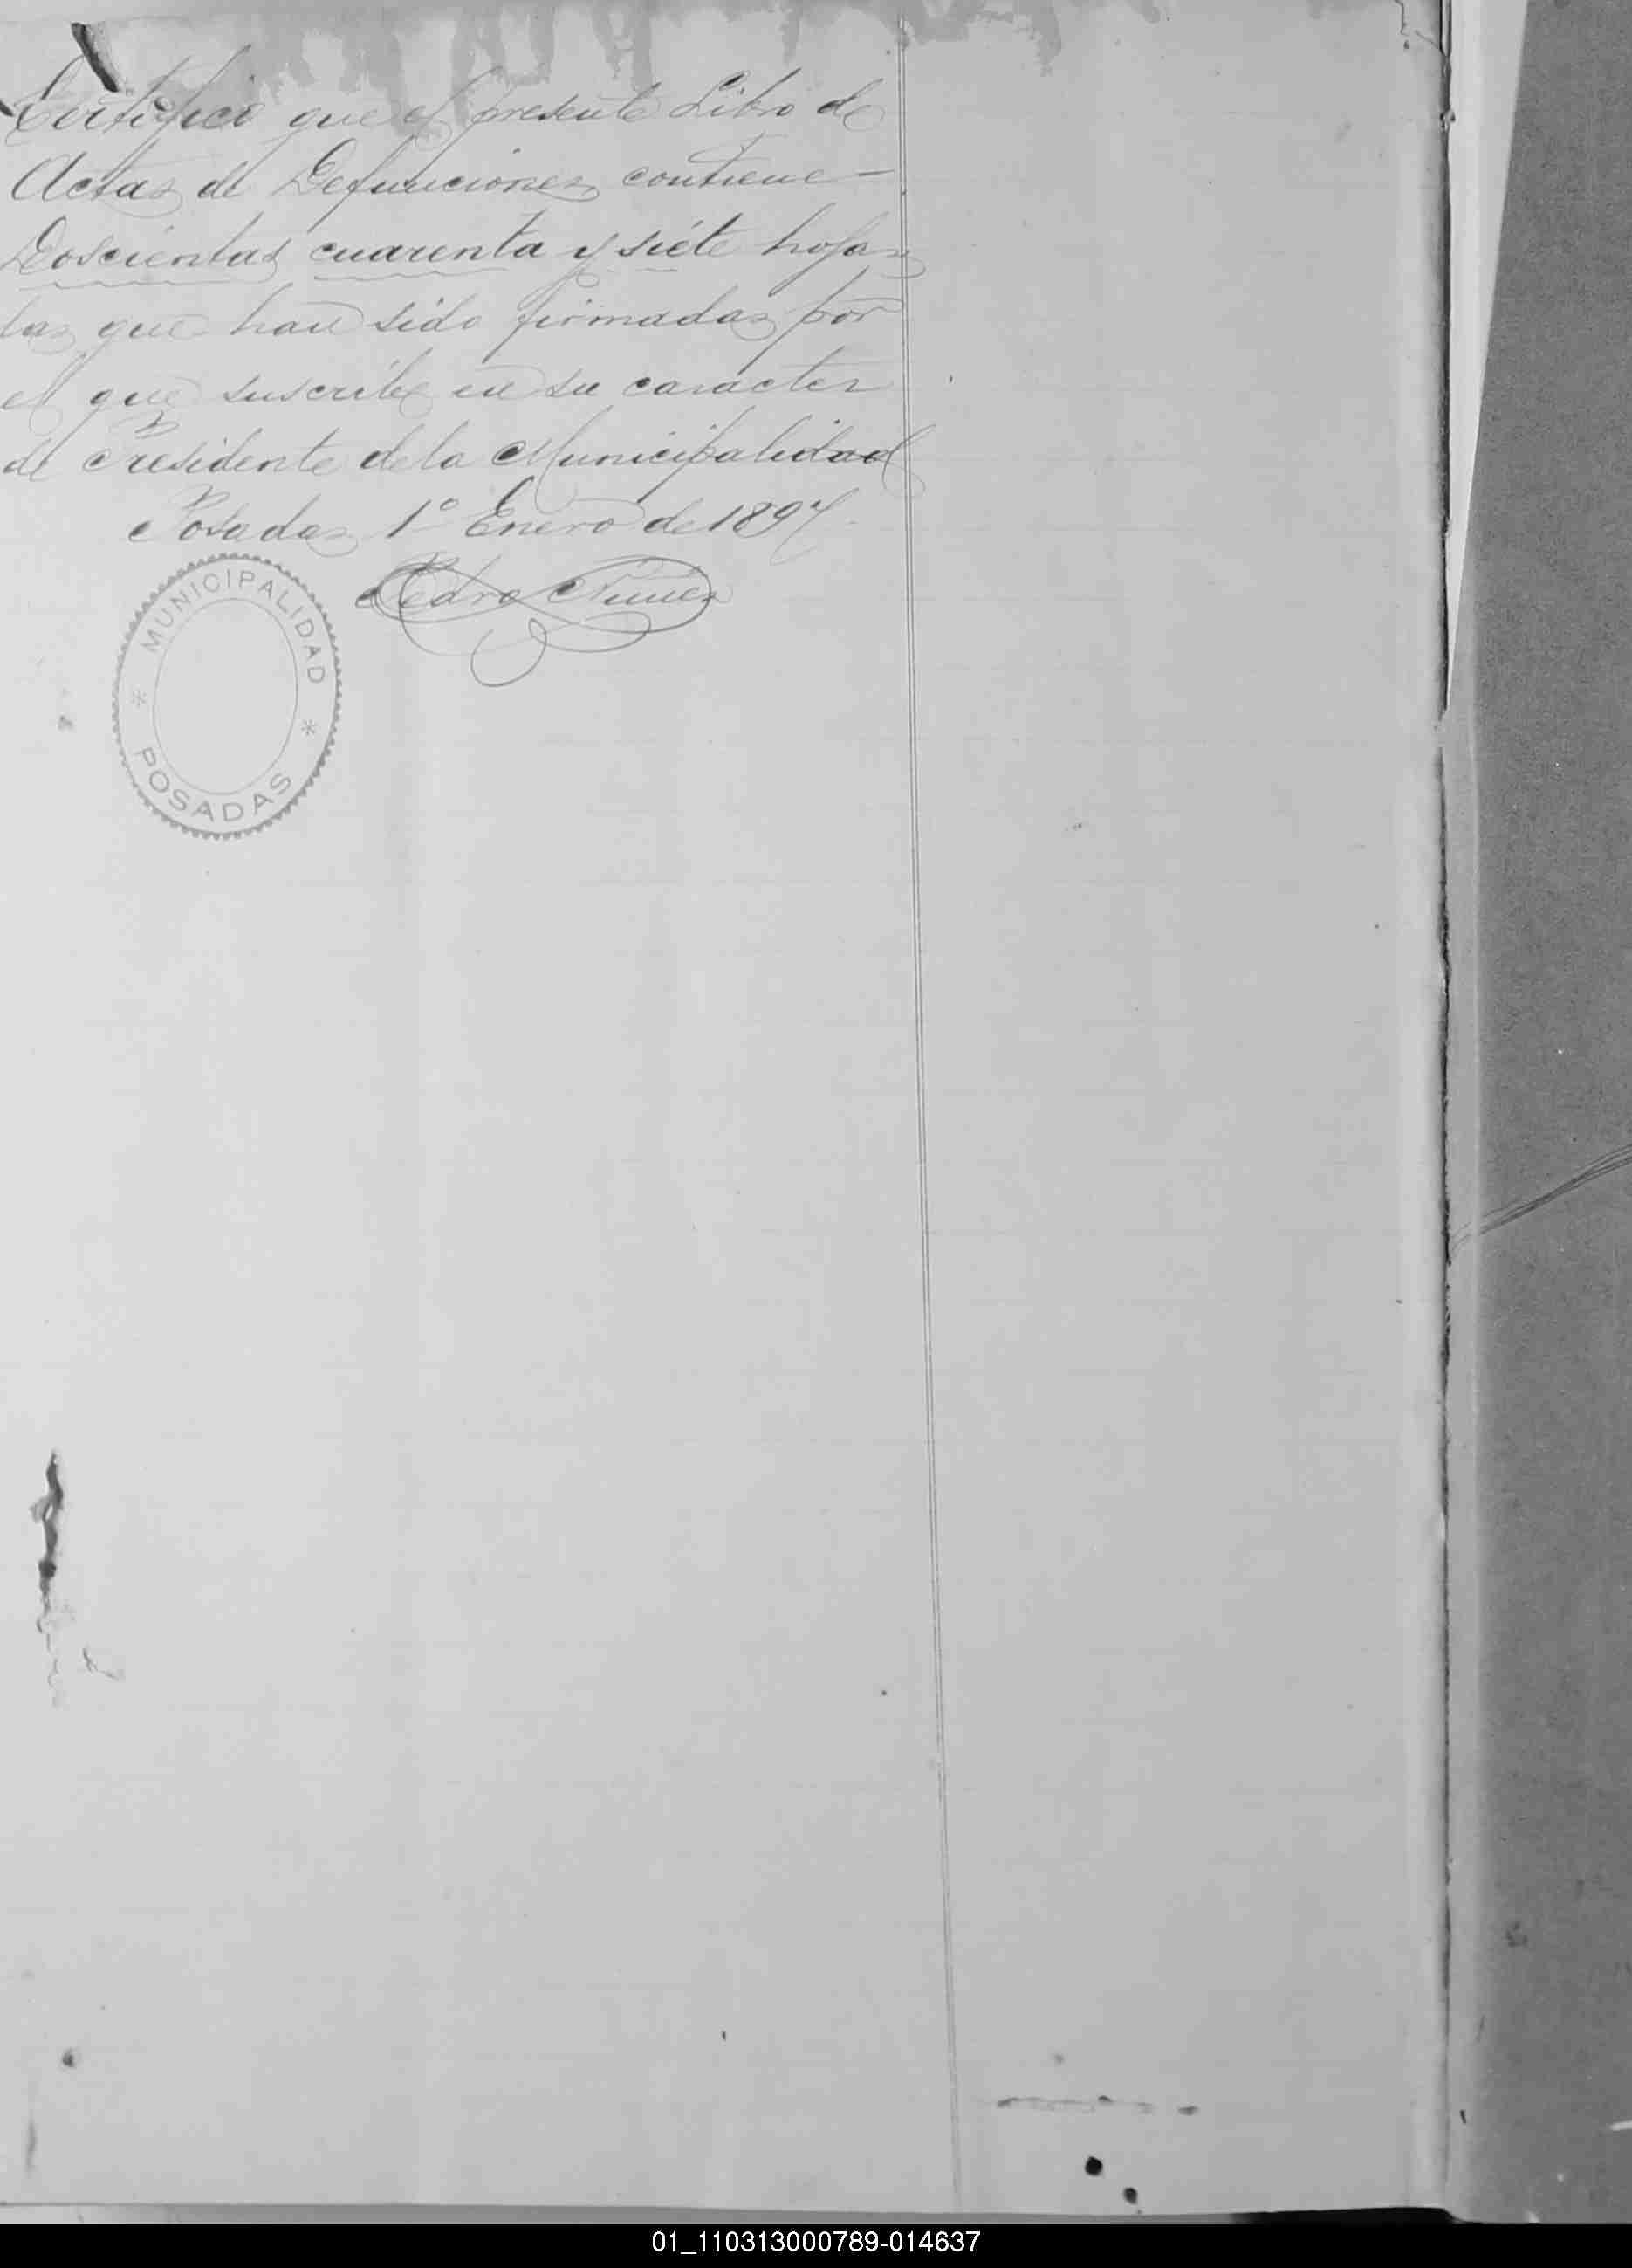 Certifico que el presente Libro de
Actas de Defunciones contiene —
Doscientas cuarenta y siete hojas
las que han sido firmadas por
el que suscribe en su caracter
de Presidente de la Municipalidad
Posadas 1º Enero de 1897
Pedro Nuñez
MUNICIPALIDAD
* *
POSADAS
01_110313000789-014637